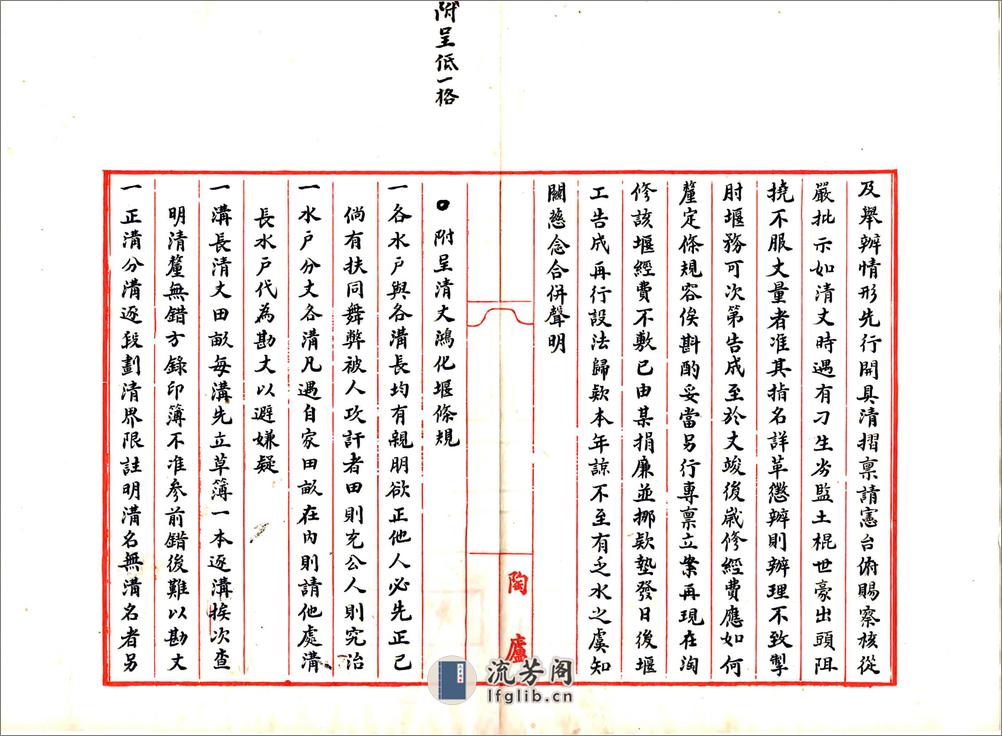 附呈低一格
及舉辦情形先行開具清摺禀請憲台俯賜察核從
嚴批示如清丈時遇有刁生劣監土棍世豪出頭阻
撓不服丈量者准其指名詳革懲辦則辦理不致掣
肘堰務可次第告成至於丈竣後歲修經費應如何
釐定條規容俟斟酌妥當另行專禀立案再現在淘
修該堰經費不敷已由某捐廉並挪欵墊發日後堰
工告成再行設法歸欵本年諒不至有乏水之虞知
關慈念合併聲明
附呈清丈鴻化堰條規
一各水戶與各溝長均有親朋欲正他人必先正己
倘有扶同舞弊被人攻訐者田則充公人則究治
一水戶分丈各溝凡遇自家田畝在內則請他處溝
長水戶代為勘丈以避嫌疑
一溝長清丈田畝每溝先立草簿一本逐溝挨次查
明清釐無錯方錄印簿不准參前錯後難以勘丈
一正溝分溝逐段劃清界限註明溝名無溝名者另
陶廬
流芳阁
lfglib.cn